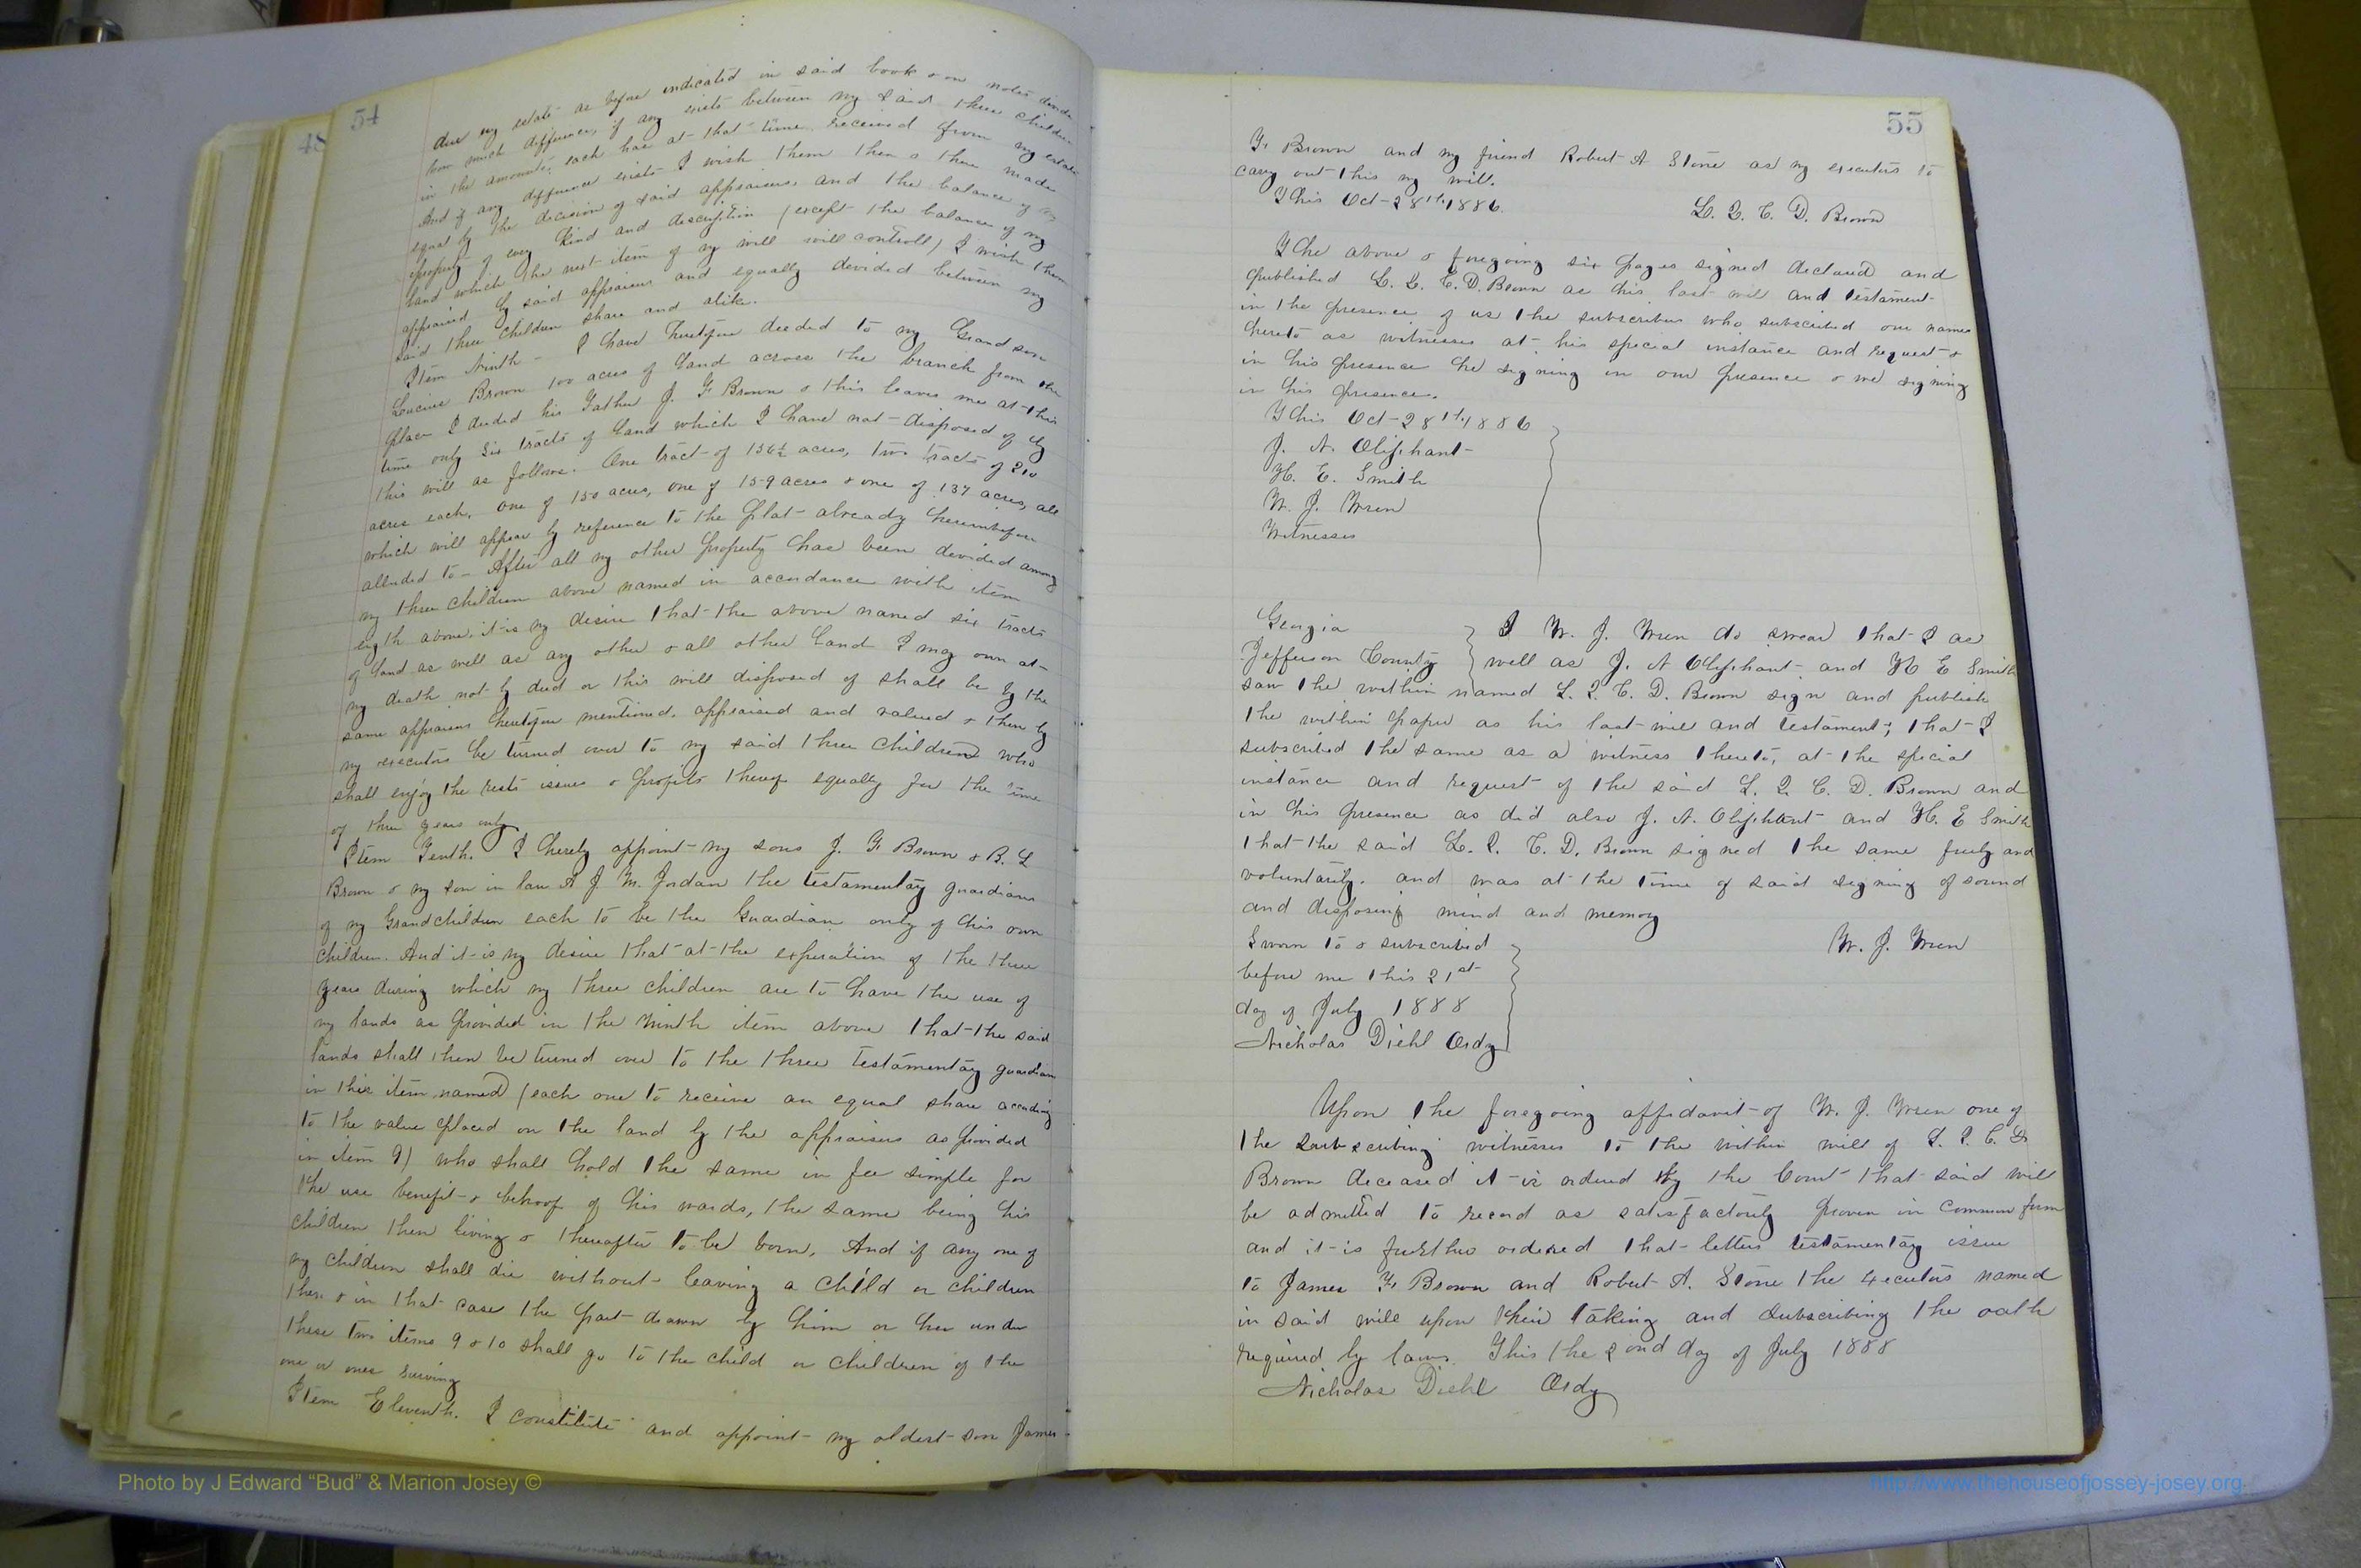 48
54
due my estate as before indicated in said book & on notes
how much difference, if any exists between my said three children
in the amounts each has at that time received from my estate
And if any difference exists I wish them then & there made
equal by the decision of said appraisers, and the balance of my
property of every kind and description (except the balance of my
land which the next item of my will will controll) I wish them
appraised by said appraisers and equally devided between my
said three children share and alike.
Item Ninth - I have heretofore deeded to my Grand son
Lucius Brown 100 acres of land across the branch from the
place I deeded his Father J. F. Brown & this leaves me at this
time only six tracts of land which I have not disposed of by
this will as follows. One tract of acres, two tracts of 210
acres each, one of 150 acres, one of 159 acres & one of 137 acres, all
which will appear by reference to the plat already hereinbefore
alluded to - After all my other property has been devided among
my three children above named in accordance with item
eigth above, it is my desire that the above named six tracts
of land as well as any other & all other land I may own at
my death not by deed or this will disposed of shall be by the
same appraisers heretofore mentioned, appraised and valued & then by
my executors be turned over to my said three children who
shall enjoy the rests issues & profits thereof equally for the time
of three years only
Item Tenth. I hereby appoint my sons J. F. Brown & B. L
Brown & my son in law A J. M. Jordan the testamentary guardians
of my Grandchildren each to be the Guardian only of his own
children. And it is my desire that at the experation of the three
years during which my three children are to have the use of
my lands as provided in the Ninth item above that the said
lands shall then be turned over to the three testamentary guardians
in this item named (each one to receive an equal share according
to the value placed on the land by the appraisers as provided
in item 9) who shall hold the same in fee simple for
the use benefit & behoof of his wards, the same being his
children then living & thereafter to be born. And if any one of
my children shall die without leaving a child or children
then & in that case the part drawn by him or her under
these two items 9 & 10 shall go to the child or children of the
one or ones surving
Item Eleventh. I constitute and appoint my oldest son James
55
F. Brown and my friend Robert A Stone as my executors to
carry out this my will.
This Oct 28th 1886. L. Q. C. D. Brown
The above & foregoing six pages signed declared and
published L. Q. C. D. Brown as his last will and testament
in the presence of us the subscribers who subscribed our names
hereto as witnesses at his special instance and request &
in his presence he signing in our presence & we signing
in his presence.
This Oct 28th 1886
J. A. Oliphant
H. E. Smith
W. J. Wren
Witnesses
Georgia
Jefferson County
I W. J. Wren do swear that I as
well as J. A Oliphant and H E Smith
saw the within named L. Q. C. D. Brown sign and publish
the within paper as his last will and testament; that I
subscribed the same as a witness thereto, at the special
instance and request of the said L. Q. C. D. Brown and
in his presence as did also J. A. Oliphant and H. E Smith
that the said L. Q. C. D. Brown signed the same freely and
voluntarily. and was at the time of said signing of sound
and disposing mind and memory
Sworn to & subscribed W. J. Wren
before me this 21st
day of July 1888
Nicholas Diehl Ordy
Upon the foregoing affidavit of W. J. Wren one of
the subscribing witnesses to the within will of L. Q. C. D
Brown deceased it is ordered by the Court that said will
be admitted to record as satisfactorily proven in common form
and it is further ordered that letters testamentary issue
to James F. Brown and Robert A. Stone the Executors named
in said will upon their taking and subscribing the oath
required by laws. This the 2ond day of July 1888
Nicholas Diehl Ordy
Photo by J Edward “Bud” & Marion Josey ©
http://www.thehouseofjossey-josey.org